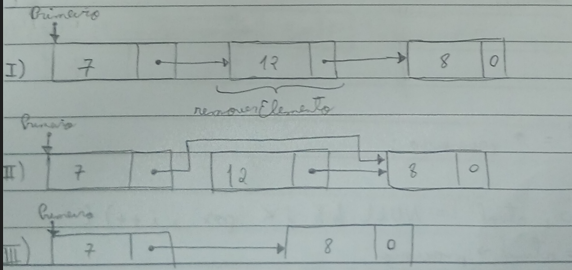 Primeiro
I) 7 12 8 0
removerElemento
Primeiro
II) 7 12 8 0
Primeiro
III) 7 8 0